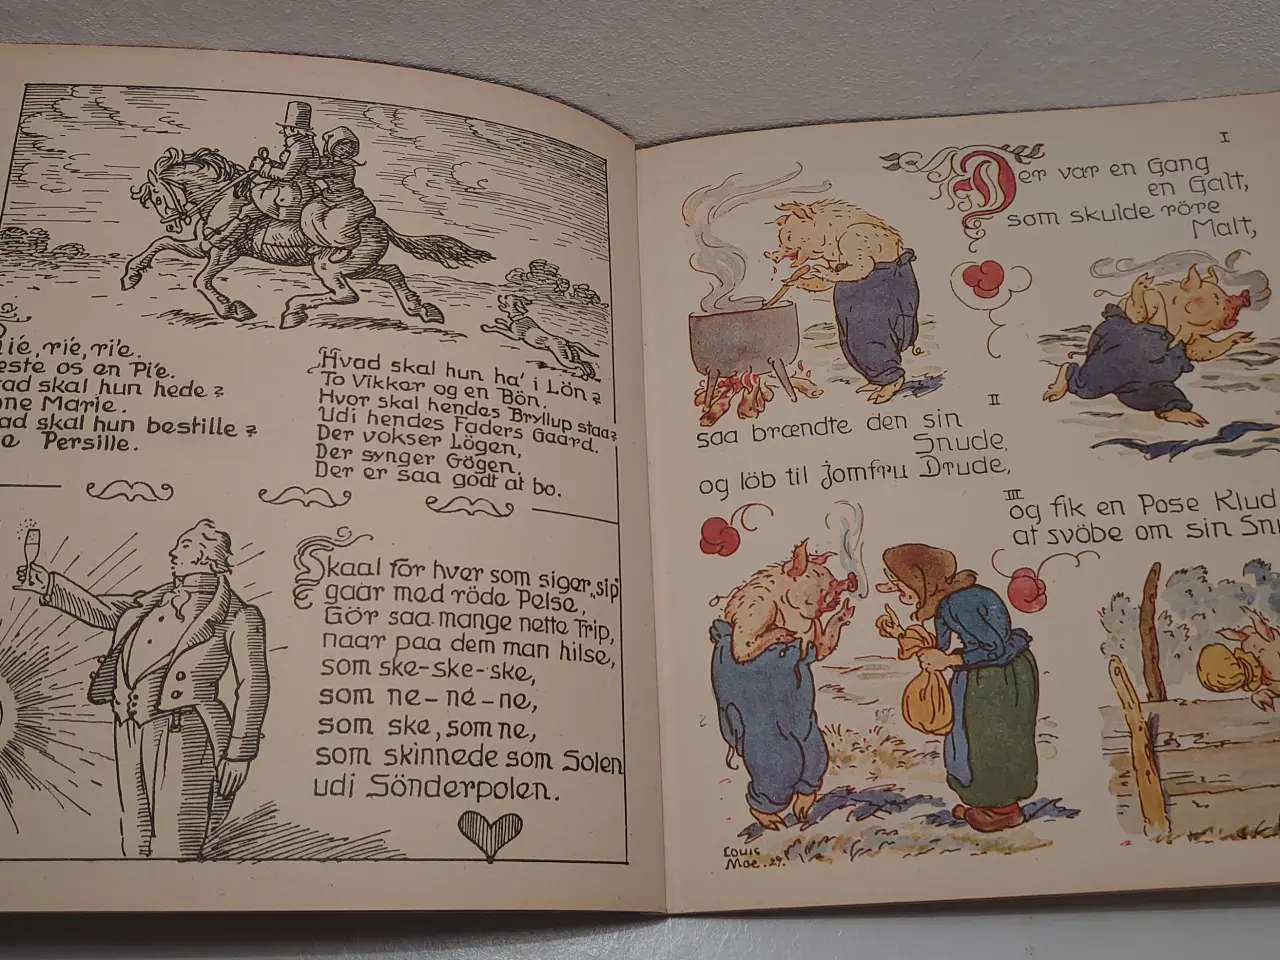 rie, rie, rie.
os en Pie.
skal hun hede?
Marie.
skal hun bestille?
Persille.
Hvad skal hun ha' i Lön?
To Vikkar og en Bön.
Hvor skal hendes Bryllup staa?
Udi hendes Faders Gaard.
Der vokser Lögen,
Der synger Gögen,
Der er saa godt at bo.
Skaal for hver som siger „sip"
gaar med röde Pelse,
Gör saa mange nette Trip,
naar paa dem man hilse,
som ske-ske-ske,
som ne-ne-ne,
som ske, som ne,
som skinnede som Solen
udi Sönderpolen.
I
Der var en Gang
en Galt,
som skulde röre
Malt,
II
saa brændte den sin
Snude,
og löb til jomfru Drude,
III
og fik en Pose
at svöbe om sin
Louis
Moe. 29.